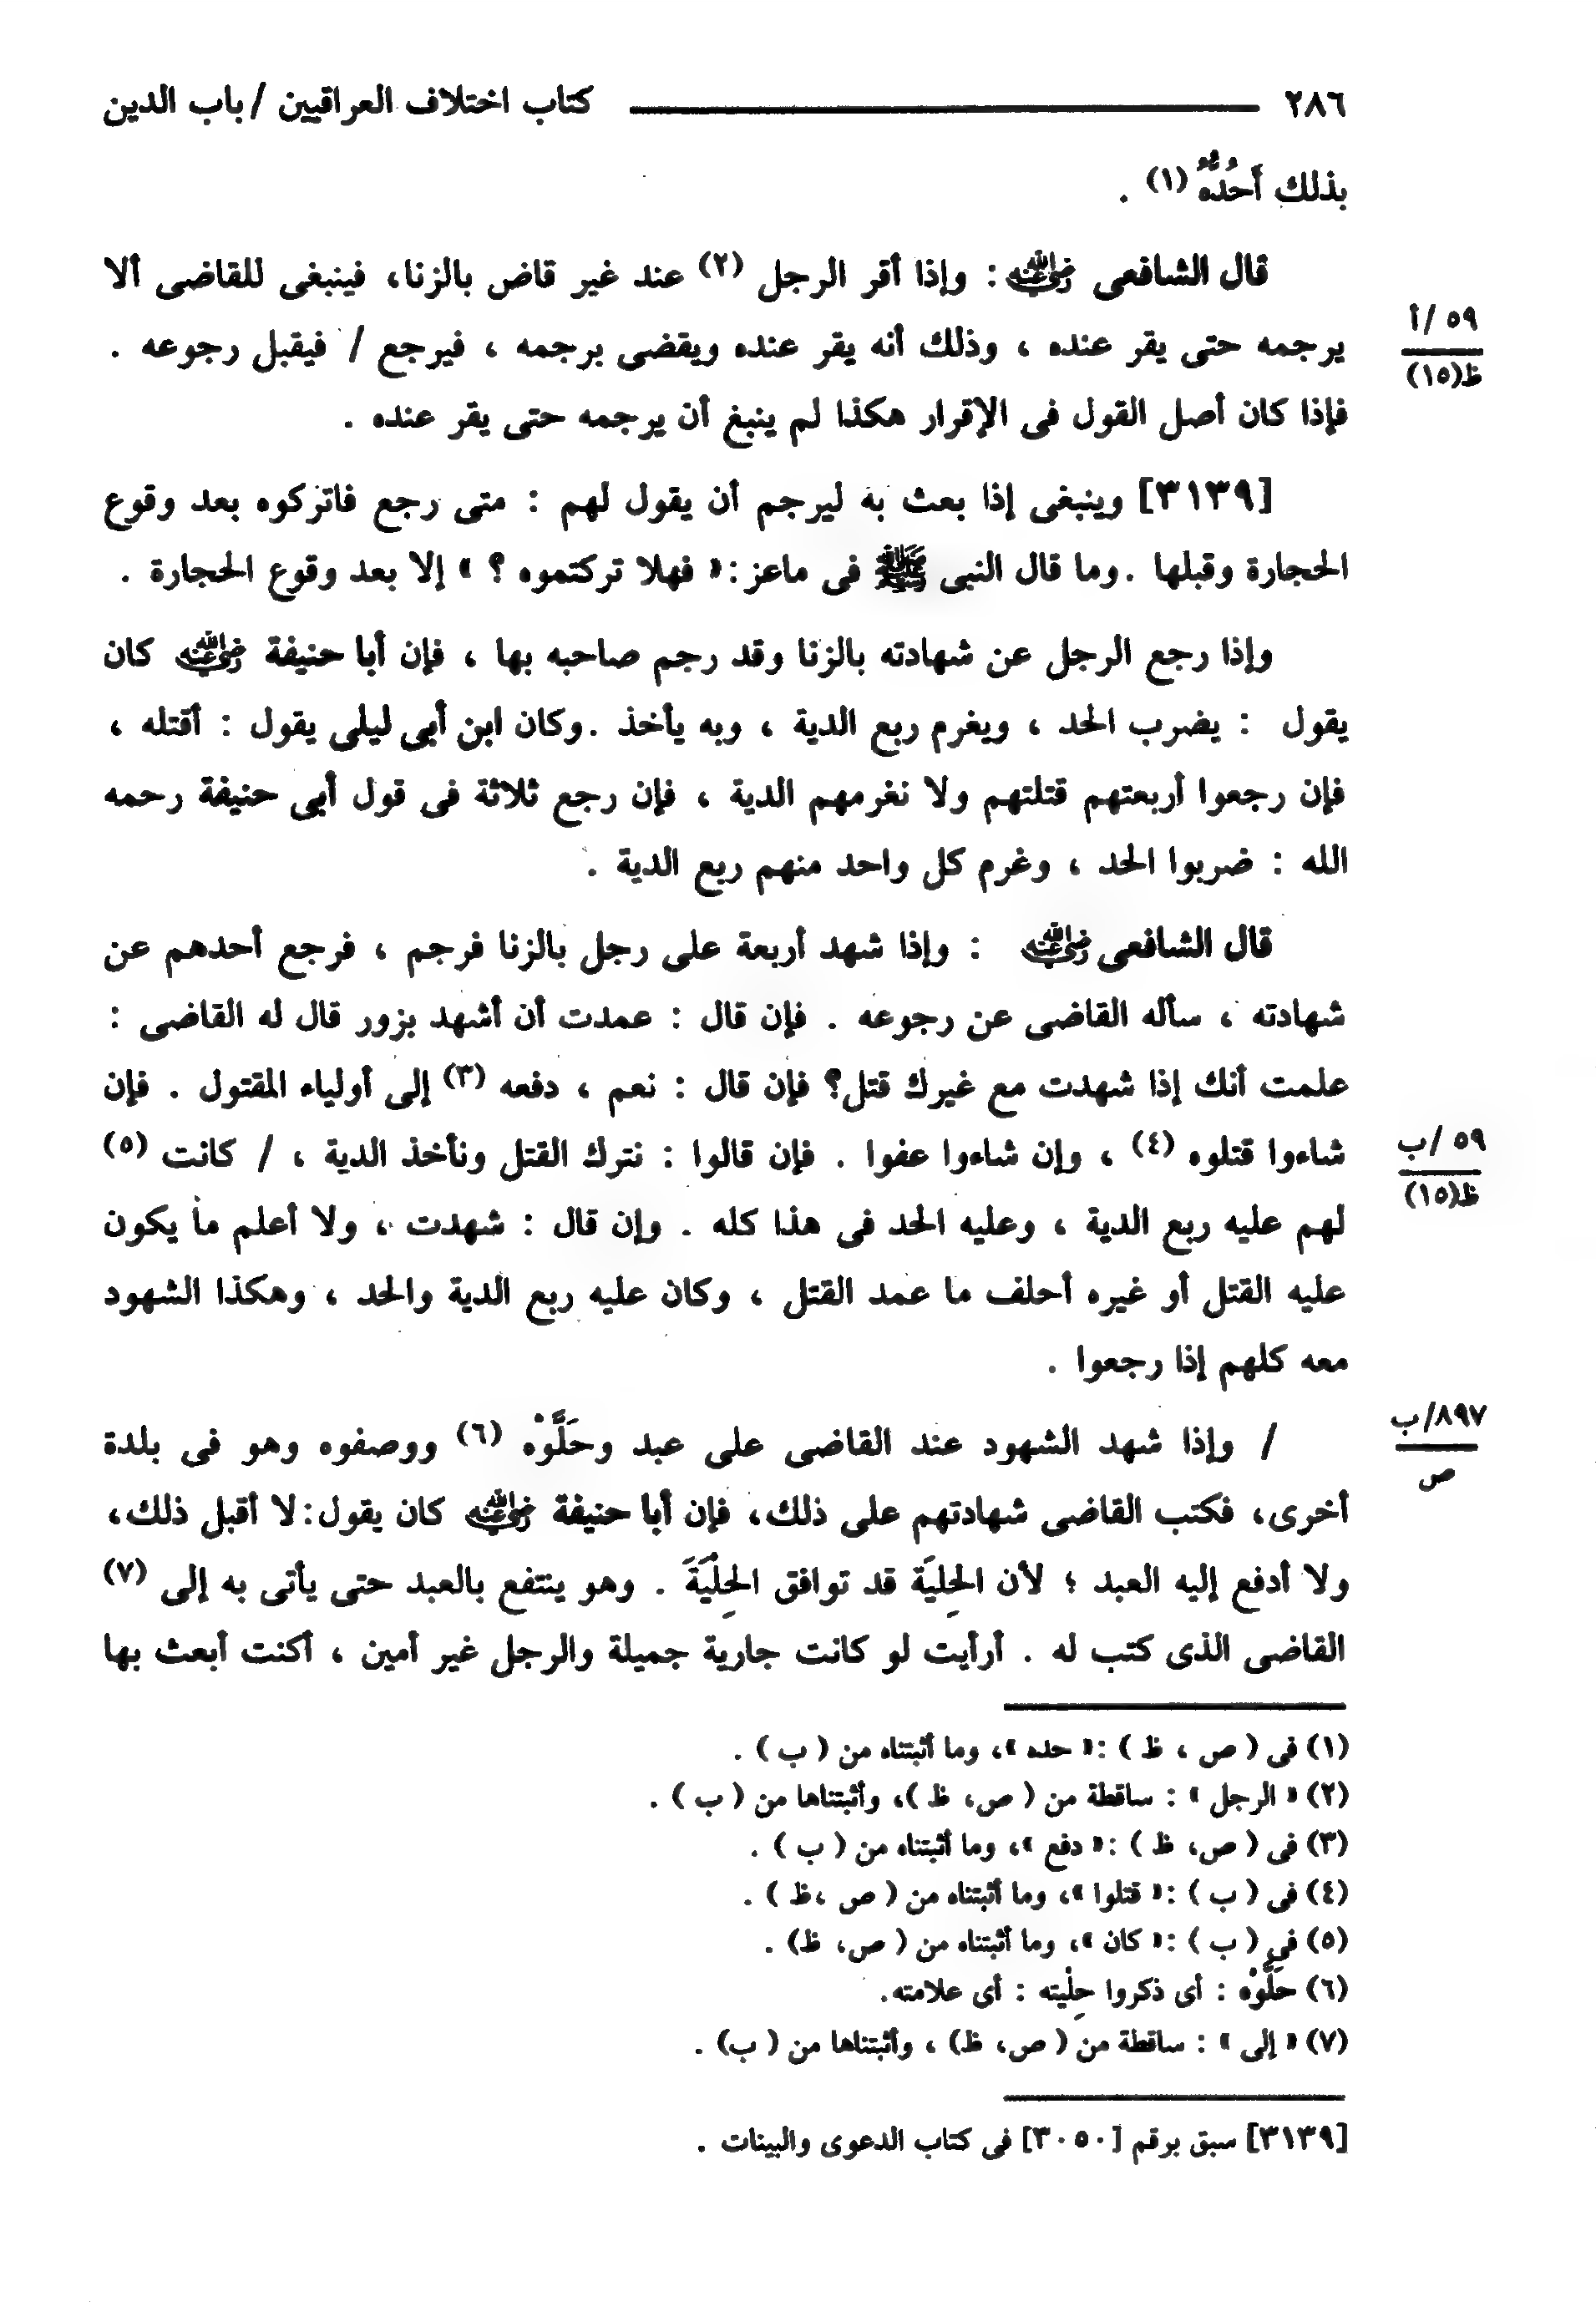 ٢٨٦ كتاب اختلاف العراقيين / باب الدين
بذلك أَحُدُّهُ (١) .
قال الشافعى رضي الله عنه : وإذا أقر الرجل (٢) عند غير قاض بالزنا، فينبغى للقاضى ألا
يرجمه حتى يقر عنده ، وذلك أنه يقر عنده ويقضى برجمه ، فيرجع / فيقبل رجوعه .
٥٩ /أ
ظ(١٥)
فإذا كان أصل القول فى الإقرار هكذا لم ينبغ أن يرجمه حتى يقر عنده .
[٣١٣٩] وينبغى إذا بعث به ليرجم أن يقول لهم : متى رجع فاتركوه بعد وقوع
الحجارة وقبلها . وما قال النبى ﷺ فى ماعز : « فهلا تركتموه ؟ » إلا بعد وقوع الحجارة .
وإذا رجع الرجل عن شهادته بالزنا وقد رجم صاحبه بها ، فإن أبا حنيفة رضي الله عنه كان
يقول : يضرب الحد ، ويغرم ربع الدية ، وبه يأخذ . وكان ابن أبى ليلى يقول : أقتله ،
فإن رجعوا أربعتهم قتلتهم ولا نغرمهم الدية ، فإن رجع ثلاثة فى قول أبى حنيفة رحمه
الله : ضربوا الحد ، وغرم كل واحد منهم ربع الدية .
قال الشافعى رضي الله عنه : وإذا شهد أربعة على رجل بالزنا فرجم ، فرجع أحدهم عن
شهادته ، سأله القاضى عن رجوعه . فإن قال : عمدت أن أشهد بزور قال له القاضى :
علمت أنك إذا شهدت مع غيرك قتل؟ فإن قال : نعم ، دفعه (٣) إلى أولياء المقتول . فإن
شاءوا قتلوه (٤) ، وإن شاءوا عفوا . فإن قالوا : نترك القتل ونأخذ الدية ، / كانت (٥)
٥٩ /ب
ظ(١٥)
لهم عليه ربع الدية ، وعليه الحد فى هذا كله . وإن قال : شهدت ، ولا أعلم ما يكون
عليه القتل أو غيره أحلف ما عمد القتل ، وكان عليه ربع الدية والحد ، وهكذا الشهود
معه كلهم إذا رجعوا .
/ وإذا شهد الشهود عند القاضى على عبد وحَلَّوْه (٦) ووصفوه وهو فى بلدة
٨٩٧/ب
ص
أخرى، فكتب القاضى شهادتهم على ذلك، فإن أبا حنيفة رضي الله عنه كان يقول: لا أقبل ذلك،
ولا أدفع إليه العبد ؛ لأن الحِليَة قد توافق الحِلْيَةَ . وهو ينتفع بالعبد حتى يأتى به إلى (٧)
القاضى الذى كتب له . أرأيت لو كانت جارية جميلة والرجل غير أمين ، أكنت أبعث بها
(١) فى ( ص ، ظ ) : « حده »، وما أثبتناه من ( ب ) .
(٢) « الرجل » : ساقطة من ( ص، ظ )، وأثبتناها من ( ب ) .
(٣) فى ( ص، ظ ) : « دفع »، وما أثبتناه من ( ب ) .
(٤) فى ( ب ) : « قتلوا »، وما أثبتناه من ( ص ،ظ ) .
(٥) فى ( ب ) : « كان »، وما أثبتناه من ( ص، ظ) .
(٦) حَلَّوْه : أى ذكروا حِلْيته : أى علامته.
(٧) « إلى » : ساقطة من ( ص، ظ) ، وأثبتناها من ( ب) .
[٣١٣٩] سبق برقم [٣٠٥٠] فى كتاب الدعوى والبينات .